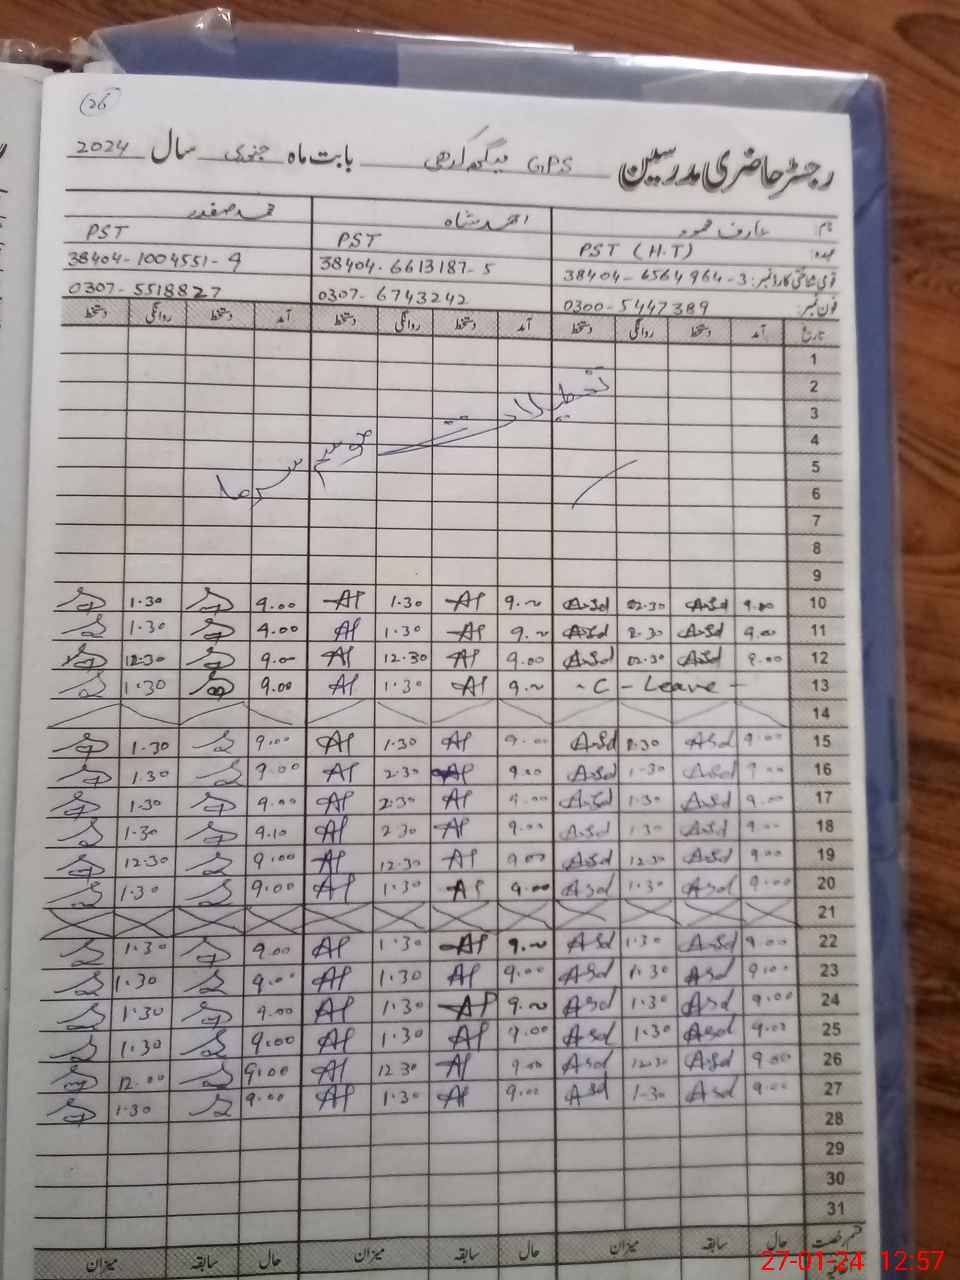 26
رجسٹر حاضری مدرسین GPS بابت ماہ جنوری سال 2024
نام: عارف محمود احمد شاہ محمد صفدر
عہدہ: PST (H.T) PST PST
قومی شناختی کارڈ نمبر: 38404-6564964-3 38404-6613187-5 38404-1004551-9
فون نمبر: 0300-5447389 0307-6743242 0307-5518827
تاریخ آمد دستخط روانگی دستخط آمد دستخط روانگی دستخط آمد دستخط روانگی دستخط
1
2
3
4
5
6
تعطیلات موسم سرما
7
8
9
10 9.00 Asd 02.30 Asd 9.00 AP 1.30 AP 9.00 1.30
11 9.00 Asd 2.30 Asd 9.00 AP 1.30 AP 9.00 1.30
12 9.00 Asd 02.30 Asd 9.00 AP 12.30 AP 9.00 12.30
13 - C - Leave - 9.00 AP 1.30 AP 9.00 1.30
14
15 9.00 Asd 2.30 Asd 9.00 AP 1.30 AP 9.00 1.30
16 9.00 Asd 1.30 Asd 9.00 AP 2.30 AP 9.00 1.30
17 9.00 Asd 1.30 Asd 9.00 AP 2.30 AP 9.00 1.30
18 9.00 Asd 1.30 Asd 9.00 AP 2.30 AP 9.10 1.30
19 9.00 Asd 12.30 Asd 9.00 AP 12.30 AP 9.00 12.30
20 9.00 Asd 1.30 Asd 9.00 AP 1.30 AP 9.00 1.30
21
22 9.00 Asd 1.30 Asd 9.00 AP 1.30 AP 9.00 1.30
23 9.00 Asd 1.30 Asd 9.00 AP 1.30 AP 9.00 1.30
24 9.00 Asd 1.30 Asd 9.00 AP 1.30 AP 9.00 1.30
25 9.00 Asd 1.30 Asd 9.00 AP 1.30 AP 9.00 1.30
26 9.00 Asd 12.30 Asd 9.00 AP 12.30 AP 9.00 12.00
27 9.00 Asd 1.30 Asd 9.00 AP 1.30 AP 9.00 1.30
28
29
30
31
قسم رخصت حال سابقہ میزان حال سابقہ میزان حال سابقہ میزان
27-01-24 12:57